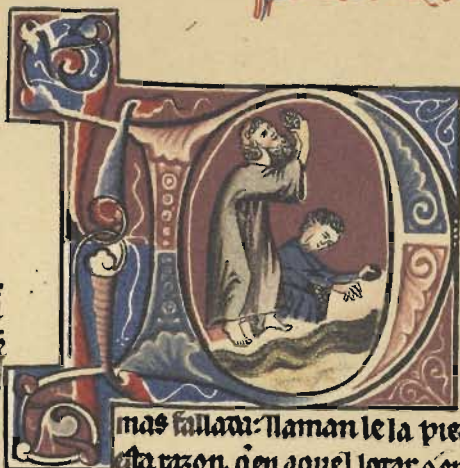 D
mas fallada: llaman le la pie
esta razon. q̃ en aquel logar